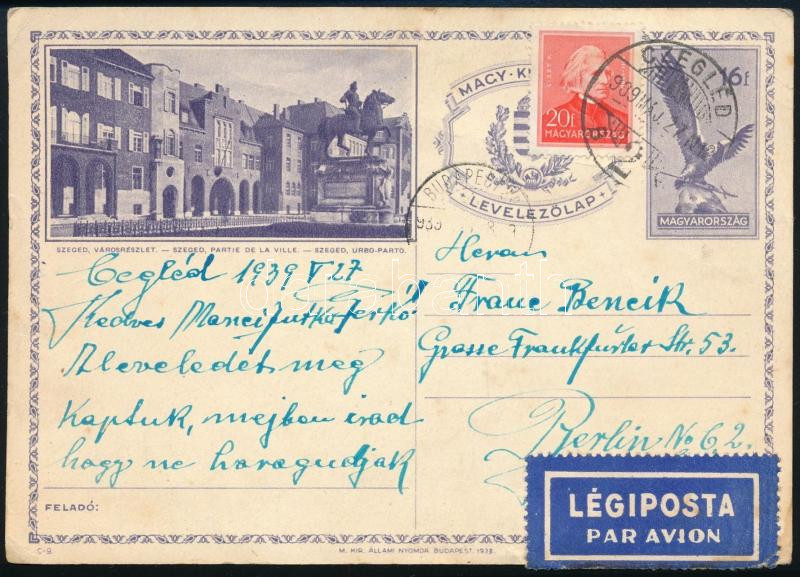 MAGY. KI
LEVELEZŐLAP
LISZT F.
20f
MAGYARORSZÁG
CZEGLÉD
939 MÁJ. 27
16f
MAGYARORSZÁG
BUDAPEST
939
SZEGED, VÁROSRÉSZLET. — SZEGED, PARTIE DE LA VILLE. — SZEGED, URBO-PARTO.
Cegléd 1939 V. 27
Kedves Manci
A leveledét meg
Kaptuk, mejben irod
hogy ne haragudjak
Herrn
Franc Bencik
Grosse Frankfurter Str. 53.
Berlin No 62.
FELADÓ:
LÉGIPOSTA
PAR AVION
C-9.
M. KIR. ÁLLAMI NYOMDA. BUDAPEST. 1933.